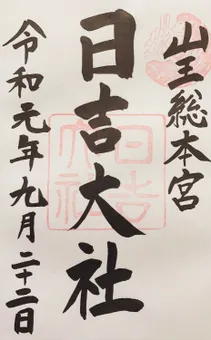 山王総本宮
日吉大社
令和元年九月二十二日
日吉大社